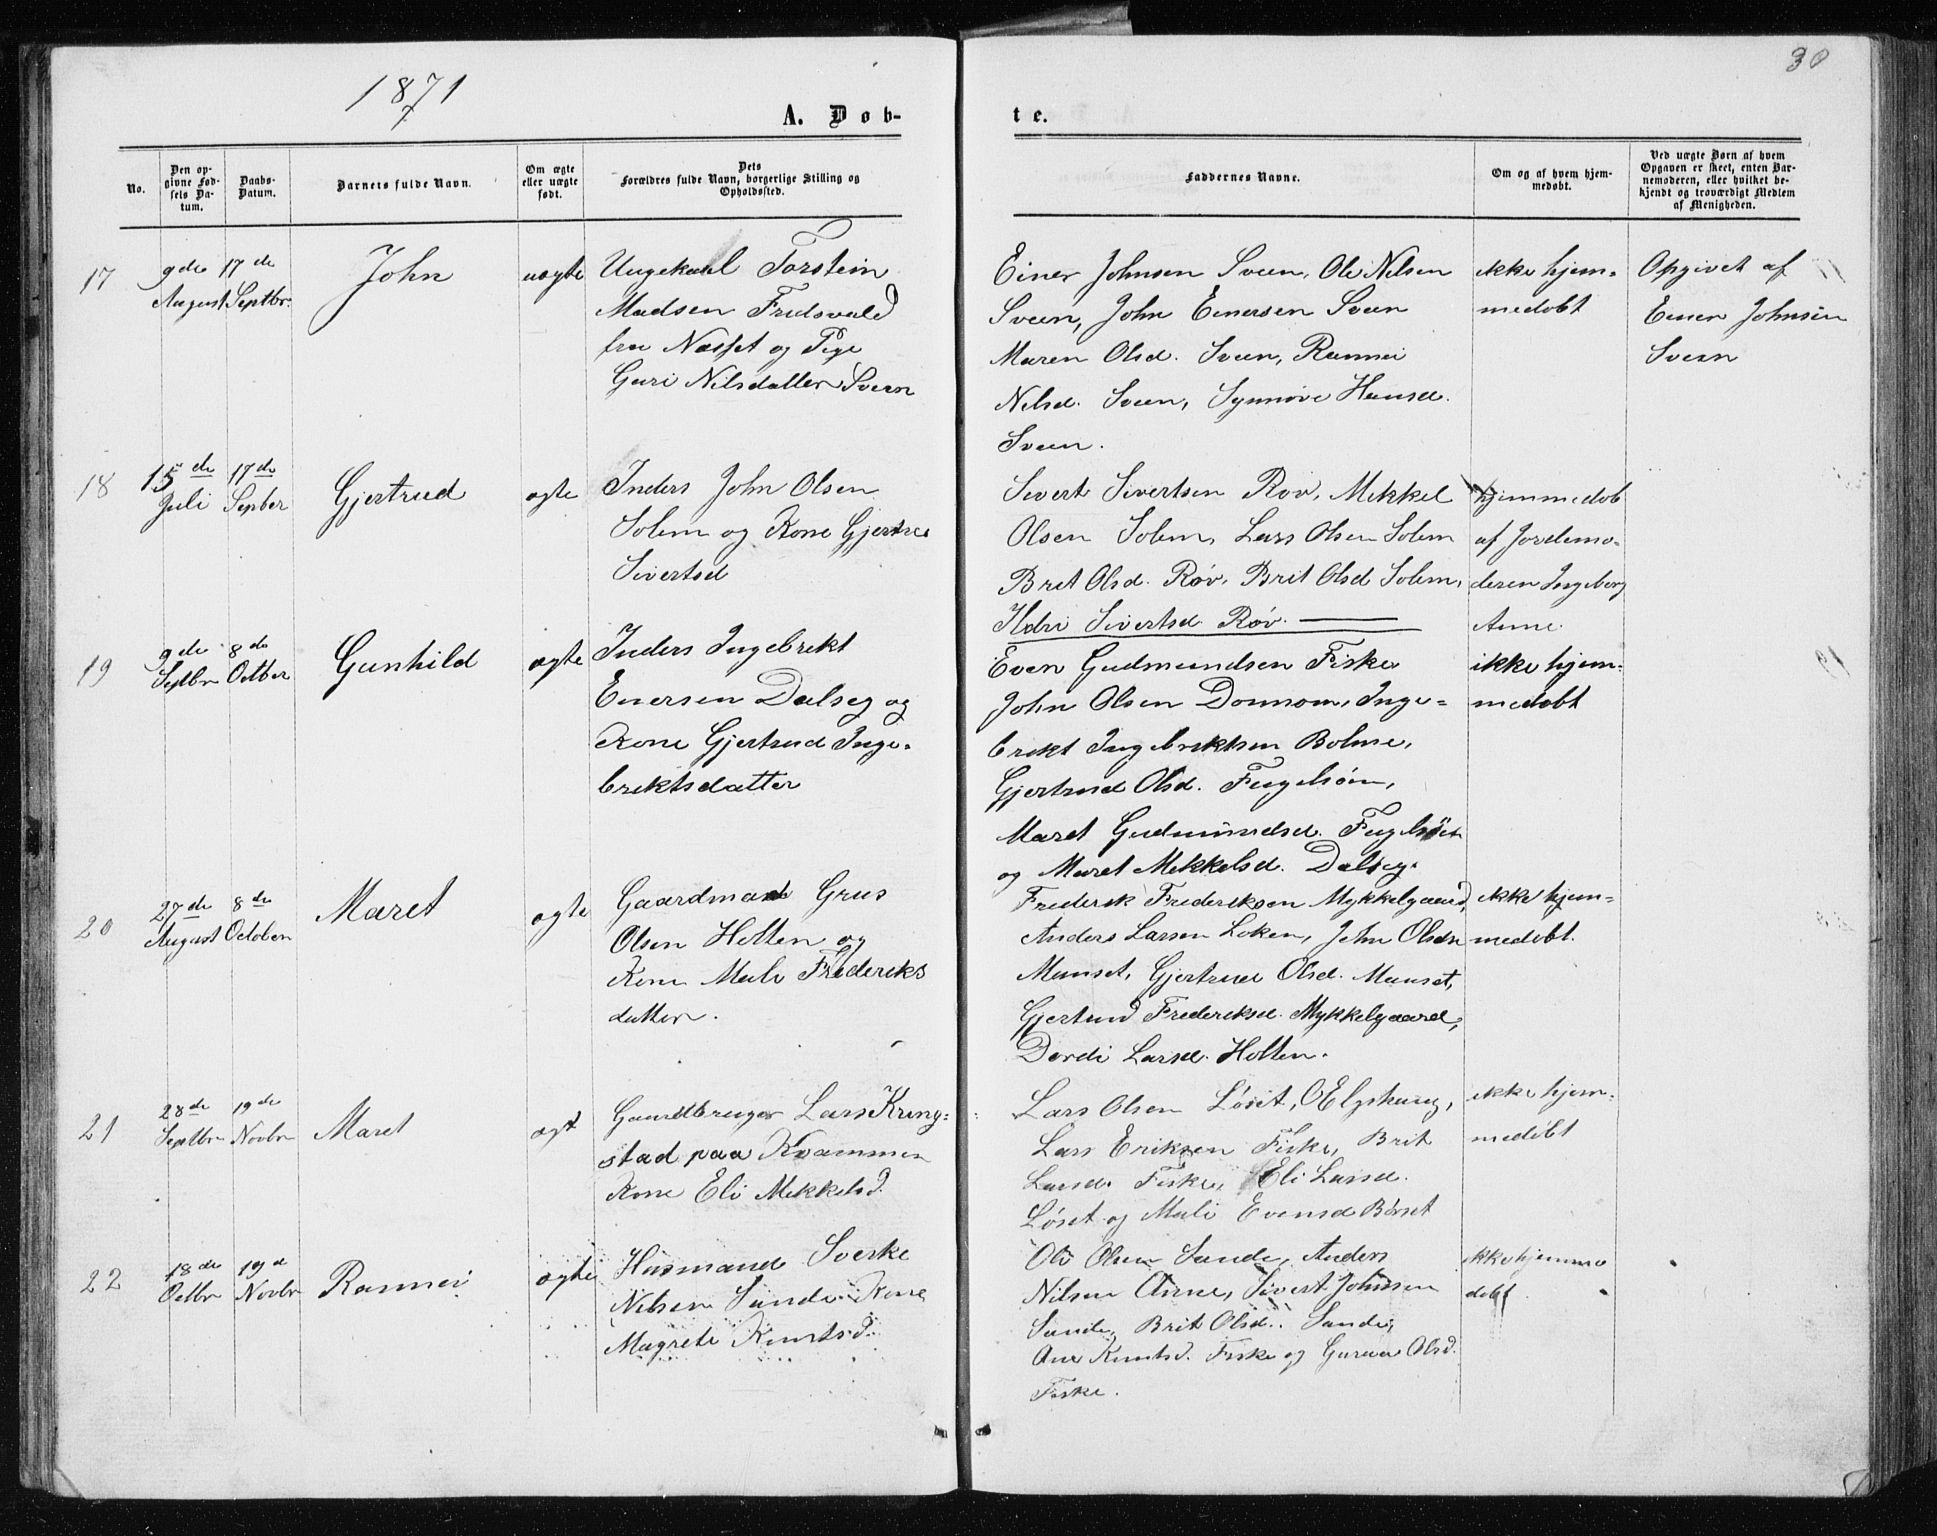 1871
30
A. Døb-
te.
No.
Den op-
givne Fød-
sels Da-
tum.
Daabs-
Datum.
Barnets fulde Navn.
Om ægte
eller uægte
født.
Dets
Forældres fulde Navn, borgerlige Stilling og
Opholdssted.
Faddernes Navne.
Om og af hvem hjem-
medøbt.
Ved uægte Børn af hvem
Opgaven er skeet, enten Bar-
nemoderen, eller hvilket be-
kjendt og troværdigt Medlem
af Menigheden.
17
9de
August
17de
Septbr.
John
uægte
Ungekarl Torstein
Madsen Fredsvald
fra Næsset og Pige
Guri Nilsdatter Sveen
Einer Johnsen Sveen, Ole Nilsen
Sveen, John Einersen Sveen
Maren Olsd. Sveen, Rannei
Nilsd. Sveen, Synnøve Hansd.
Sveen.
ikke hjem=
medøbt
Opgivet af
Einer Johnsen
Sveen
18
15de
Juli
17de
Septber
Gjertrud
ægte
Inders John Olsen
Solem og Kone Gjertru
Sivertsd
Sivert Sivertsen Røv, Mekkel
Olsen Solem, Lars Olsen Solem
Brit Olsd. Røv, Brit Olsd Solem,
Ildri Sivertsd. Røv.
hjemmedøb
af Jordemo-
deren Ingeborg
Anne.
19
9de
Septbr
8de
Octber
Gunhild
ægte
Inders Ingebrikt
Enersen Dalseg og
Kone Gjertrud Inge-
briktsdatter
Even Gudmundsen Fiske
John Olsen Donnom, Inge=
brikt Ingebriktsen Bolme,
Gjertrud Olsd. Fugelsøin,
Maret Gudmundsd. Fugelsöin
og Maret Mekkelsd. Dalseg.
ikke hjem=
medøbt
20
27de
August
8de
October
Maret
ægte
Gaardmand Grus
Olsen Holten og
Kone Mali Frederiks
datter.
Frederik Frederiksen Mykkelgaard,
Anders Larsen Løken, John Olsen
Munset, Gjertrud Olsd. Munset,
Gjertrud Frederiksd. Mykkelgaard,
Dordi Larsd. Holten.
ikke hjem=
medøbt.
21
28de
Septbr
19de
Novbr
Maret
ægt
Gaardbruger Lars Kring=
stad paa Kvammen
Kone Eli Mekkelsd.
Lars Olsen Løset, O Elgshaug,
Lars Eriksen Fiske, Brit
Larsd. Fiske, Eli Larsd.
Løset og Mali Evensd Børset
ikke hjem=
medøbt
22
18de
Octbr
19de
Novbr
Rannei
ægte
Husmand Sverke
Nilsen Sande Kone
Magrete Knutsd.
Ole Olsen Sande, Anders
Nilsen Anne, Sivert Johnsen
Sande, Brit Olsd. Sande,
Ane Knutsd. Fiske og Gurua Olsd.
Fiske.
ikke hjemme
døbt